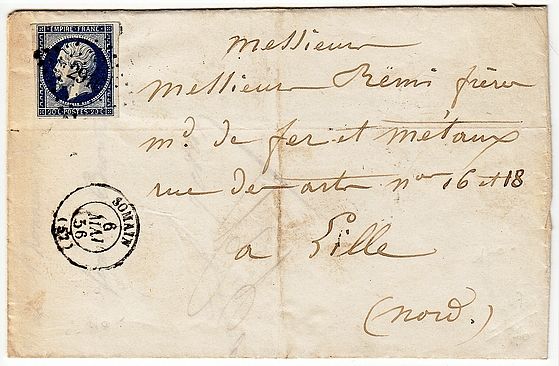 EMPIRE FRANC
29
20 C POSTES 20 C
Messieur
Messieur Rémi frères
md. de fer et métaux
rue des arts nos 16 et 18
a Lille
(Nord.)
SOMAIN
6
MAI
56
(57)